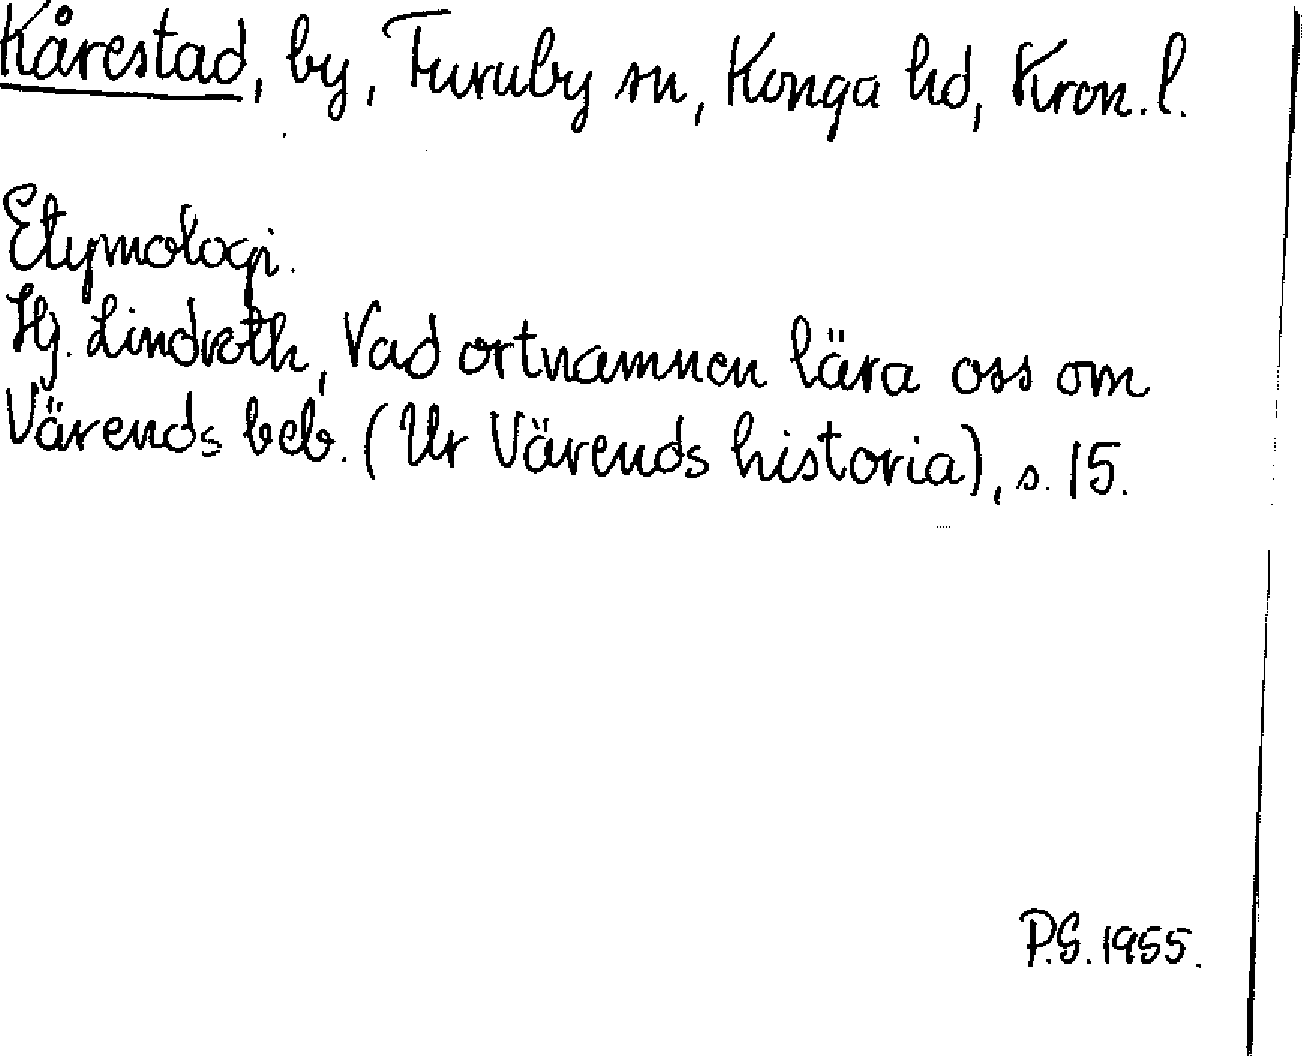 Kårestad, by, Furuby sn, Konga hd, Kron. l.
Etymologi.
Hj. Lindroth, Vad ortnamnen lära oss om
Värends beb. (Ur Värends historia), s. 15.
P.G. 1955.